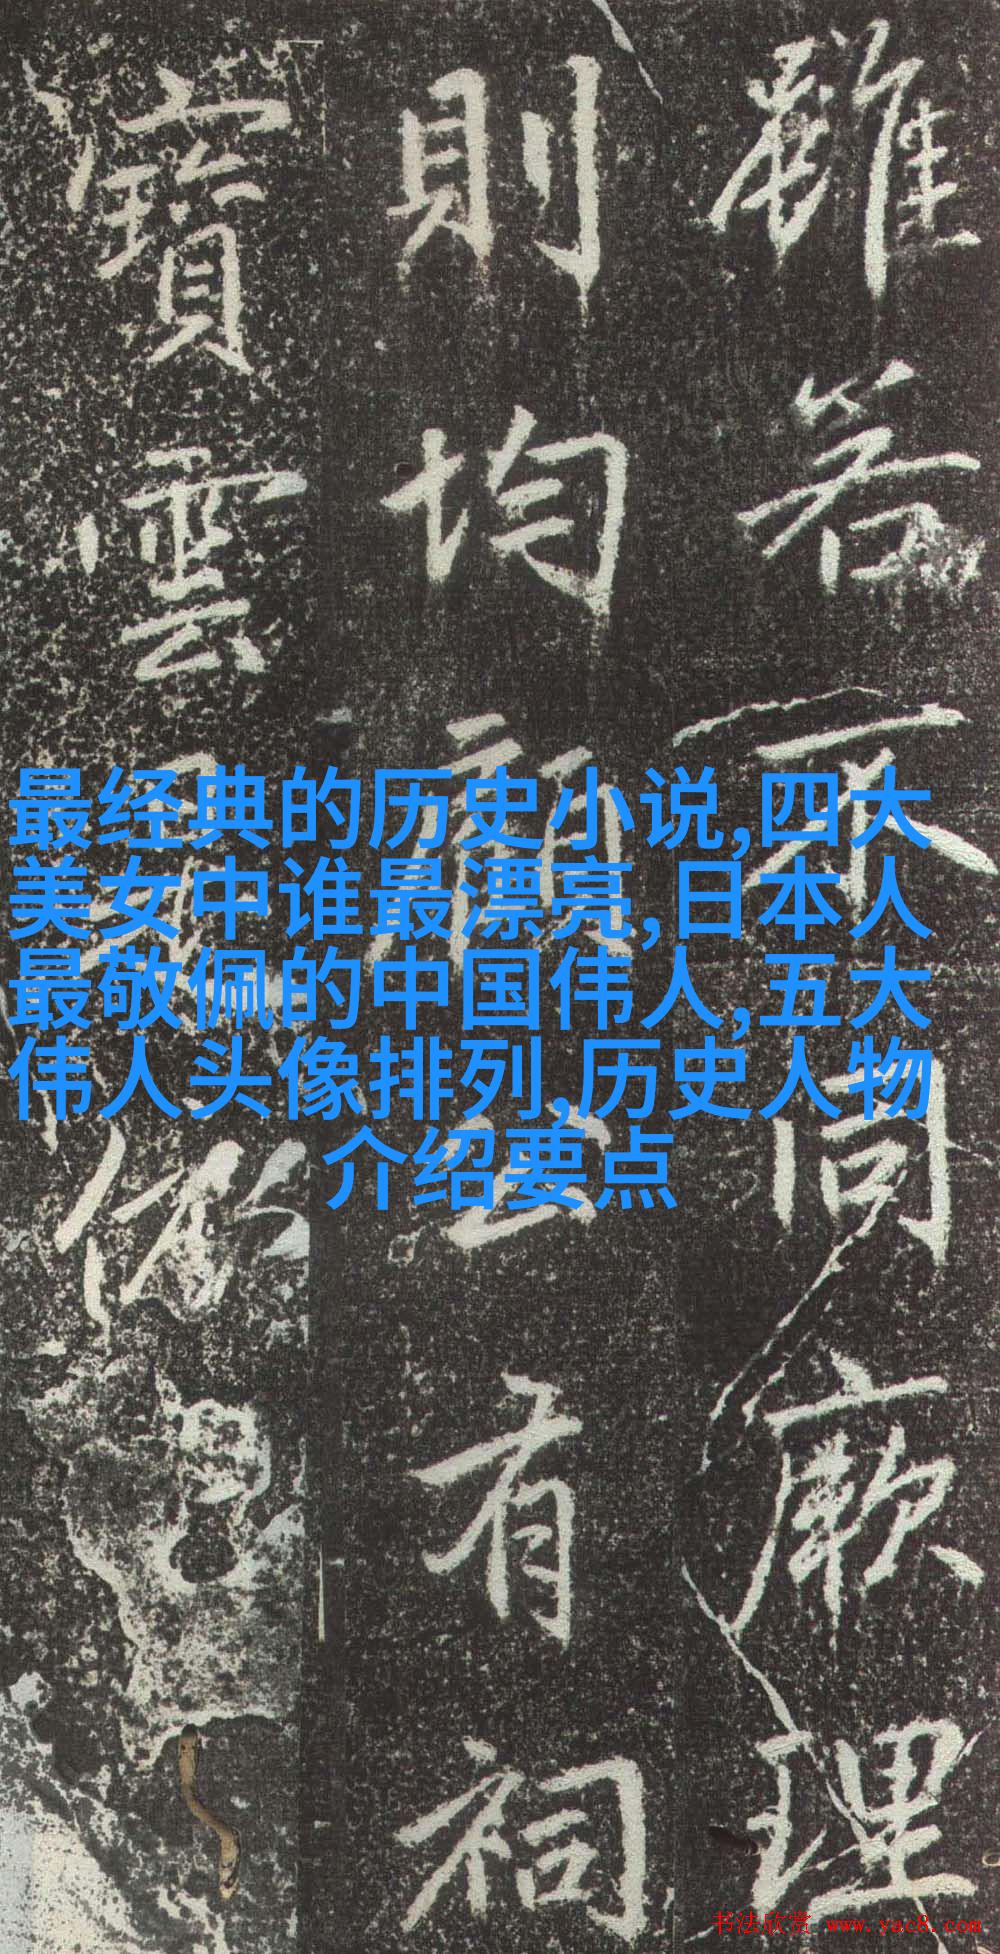 雖若不同厥理
則均有祠
寶雲
最经典的历史小说,四大
美女中谁最漂亮,日本人
最敬佩的中国伟人,五大
伟人头像排列,历史人物
介绍要点
书法欣赏 www.yac8.com